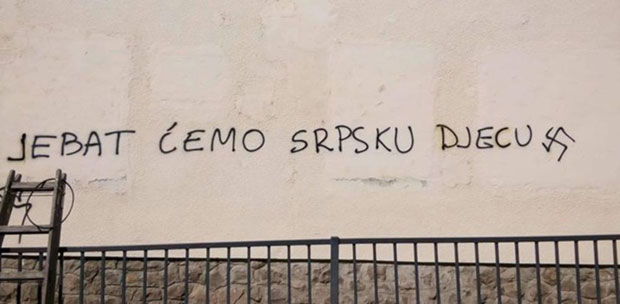 JEBAT ĆEMO SRPSKU DJECU